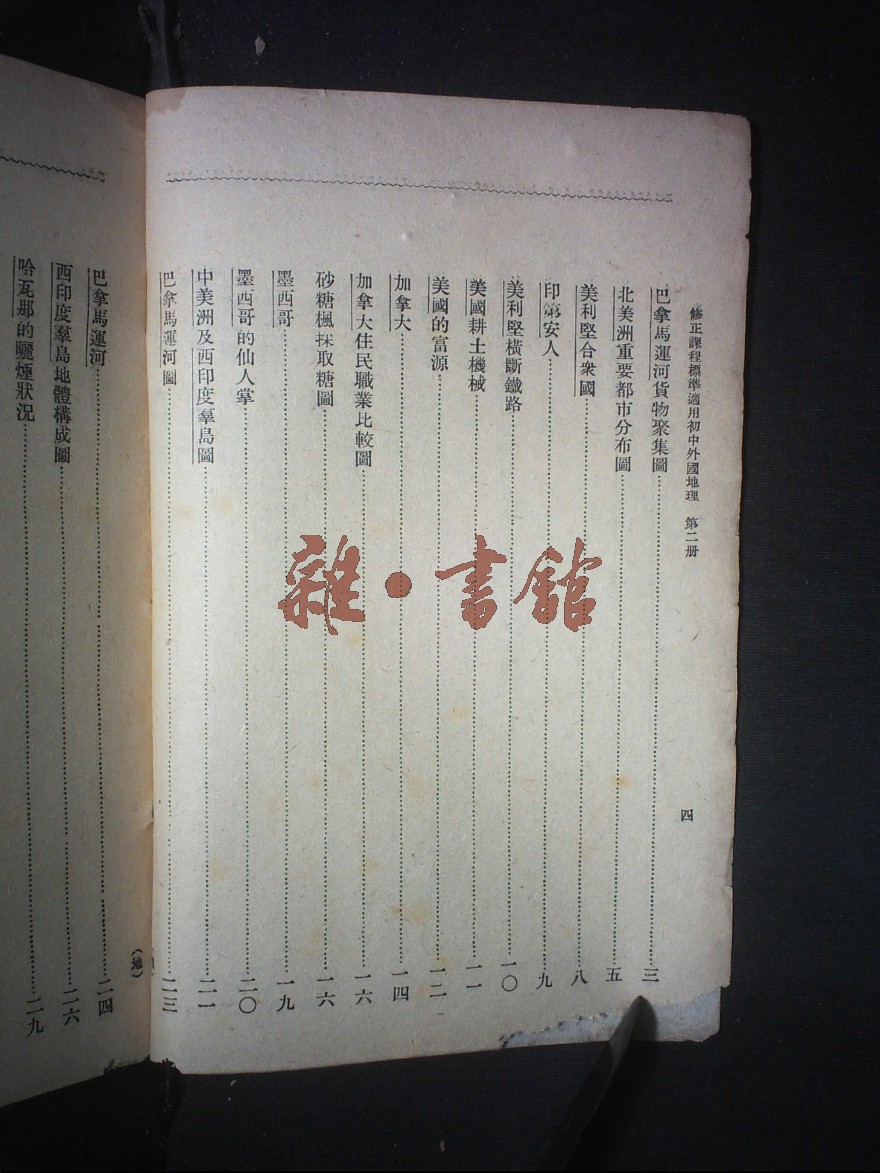 修正課程標準適用初中外國地理 第二册
四
巴拿馬運河貨物聚集圖……三
北美洲重要都市分布圖……五
美利堅合衆國……八
印第安人……九
美利堅橫斷鐵路……一〇
美國耕土機械……一一
美國的富源……一二
加拿大……一四
加拿大住民職業比較圖……一六
砂糖楓採取糖圖……一六
墨西哥……一九
墨西哥的仙人掌……二〇
中美洲及西印度羣島圖……二一
巴拿馬運河圖……二三
巴拿馬運河……二四
西印度羣島地體構成圖……二六
哈瓦那的曬煙狀況……二九
(地)
雜·書館